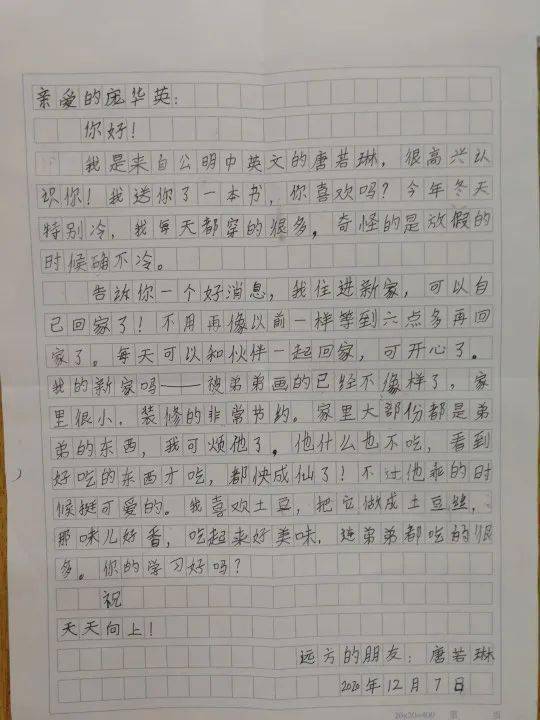 亲爱的庞华英：
你好！
我是来自公明中英文的唐若琳，很高兴认
识你！我送你了一本书，你喜欢吗？今年冬天
特别冷，我每天都穿的很多，奇怪的是放假的
时候确不冷。
告诉你一个好消息，我住进新家，可以自
己回家了！不用再像以前一样等到六点多再回
家了。每天可以和伙伴一起回家，可开心了。
我的新家吗——被弟弟画的已经不像样了，家
里很小，装修的非常节约。家里大部份都是弟
弟的东西，我可烦他了。他什么也不吃，看到
好吃的东西才吃，都快成仙了！不过他乖的时
候挺可爱的。我喜欢土豆，把它做成土豆丝，
那味儿好香，吃起来好美味，连弟弟都吃的很
多。你的学习好吗？
祝
天天向上！
远方的朋友：唐若琳
2020年12月7日
20×20=400 第 页